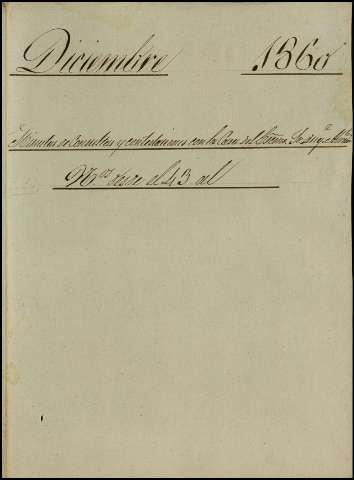 Diciembre 1860
Minutas de Consultas y contestaciones con la Casa del Excmo. Sr.
Nos. desde el 43 al